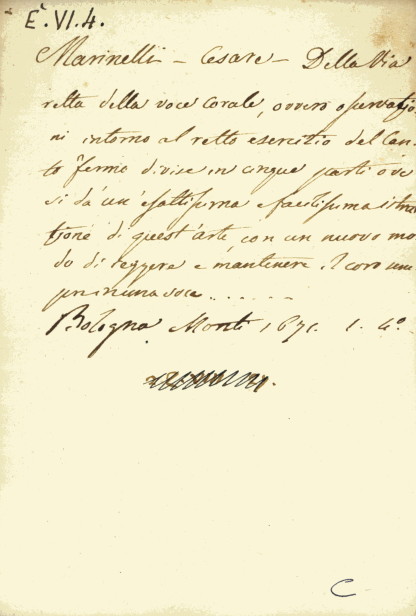 E.VI.4.
Marinelli - Cesare - Della Via
retta della voce corale, ovvero osservazio-
ni intorno al retto esercitio del Can-
to fermo divise in cinque parti ove
si dà un'esattissima e facilissima istru
zione di quest'arte, con un nuovo mo
do di reggere e mantenere il coro
sempre in una voce......
Bologna Monti 1671. 1. 4º.
C